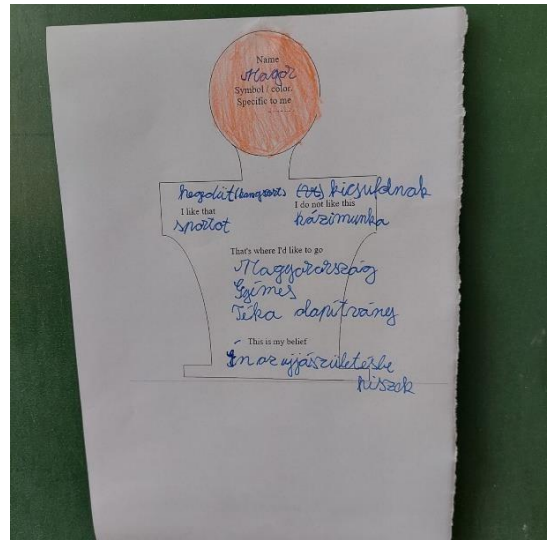 Name
Magor
Symbol / color.
Specific to me
........
hegedüt (hangszert) kicsufolnak
I like that I do not like this
sportot házimunka
That's where I'd like to go
Magyarország
Gyimes
Téka alapítvány
This is my belief
Én az ujjászületésbe
hiszek